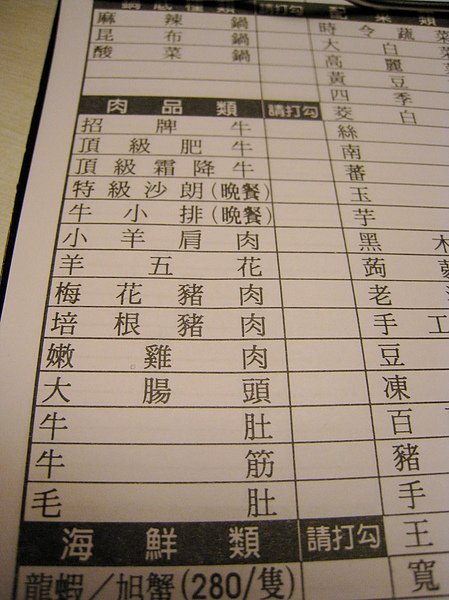 鍋底種類 請打勾
麻辣鍋
昆布鍋
酸菜鍋
肉品類 請打勾
招牌牛
頂級肥牛
頂級霜降牛
特級沙朗(晚餐)
牛小排(晚餐)
小羊肩肉
羊五花
梅花豬肉
培根豬肉
嫩雞肉
大腸頭
牛肚
牛筋
毛肚
海鮮類 請打勾
龍蝦／旭蟹(280/隻)
配菜類
時令蔬菜
大白菜
高麗菜
黃豆
四季
茭白
絲
南
蕃
玉
芋
黑木
蒟蒻
老
手工
豆
凍
百
豬
手
王
寬